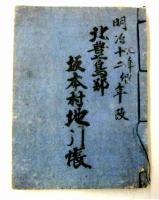 明治十二己卯年改
北豊島郡
坂本村地引帳